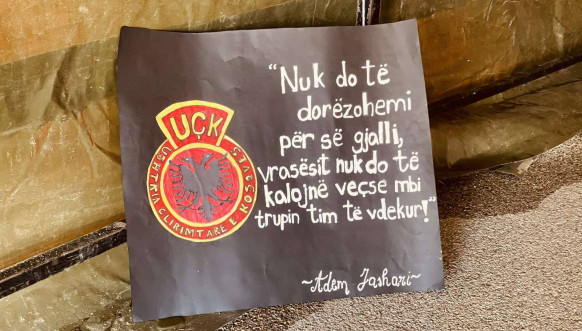 UÇK
USHTRIA ÇLIRIMTARE E KOSOVËS
"Nuk do të
dorëzohemi
për së gjalli,
vrasësit nuk do të
kalojnë veçse mbi
trupin tim të vdekur!"
~Adem Jashari~